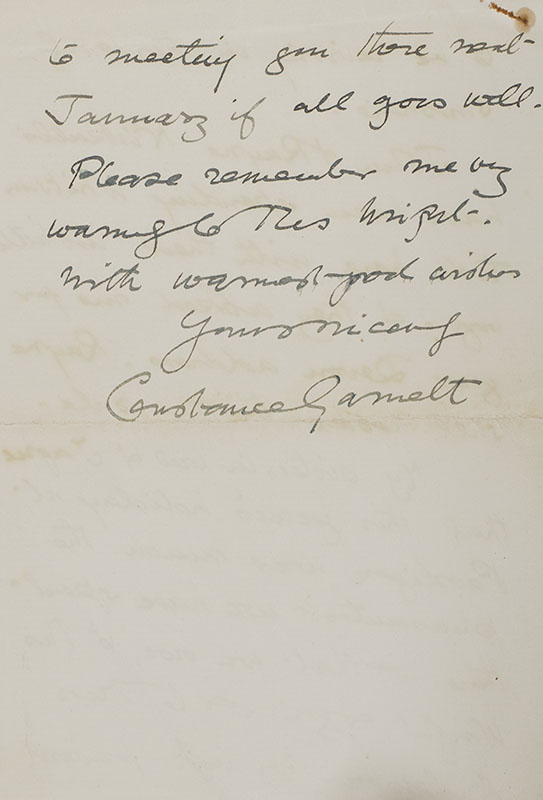 to meeting you there next
January if all goes well.
Please remember me very
warmly to Mrs Wright.
With warmest good wishes
Yours sincerely
Constance Garnett